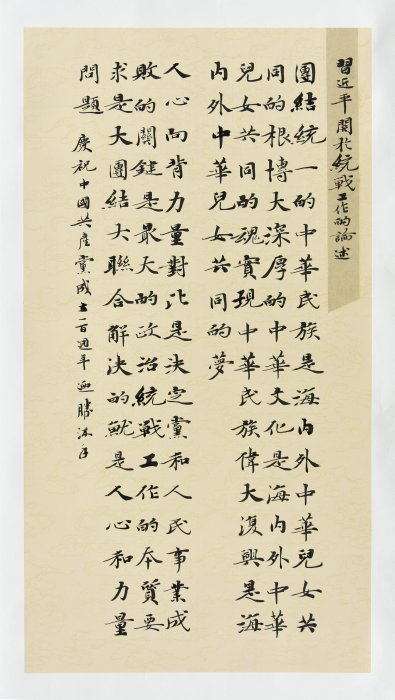 習近平關於統戰工作的論述
團結統一的中華民族是海内外中華兒女共
同的根博大深厚的中華文化是海内外中華
兒女共同的魂實現中華民族偉大復興是海
内外中華兒女共同的夢
人心向背力量對比是決定黨和人民事業成
敗的關鍵是最大的政治統戰工作的本質要
求是大團結大聯合解決的就是人心和力量
問題
慶祝中國共產黨成立一百週年 迎勝沐手